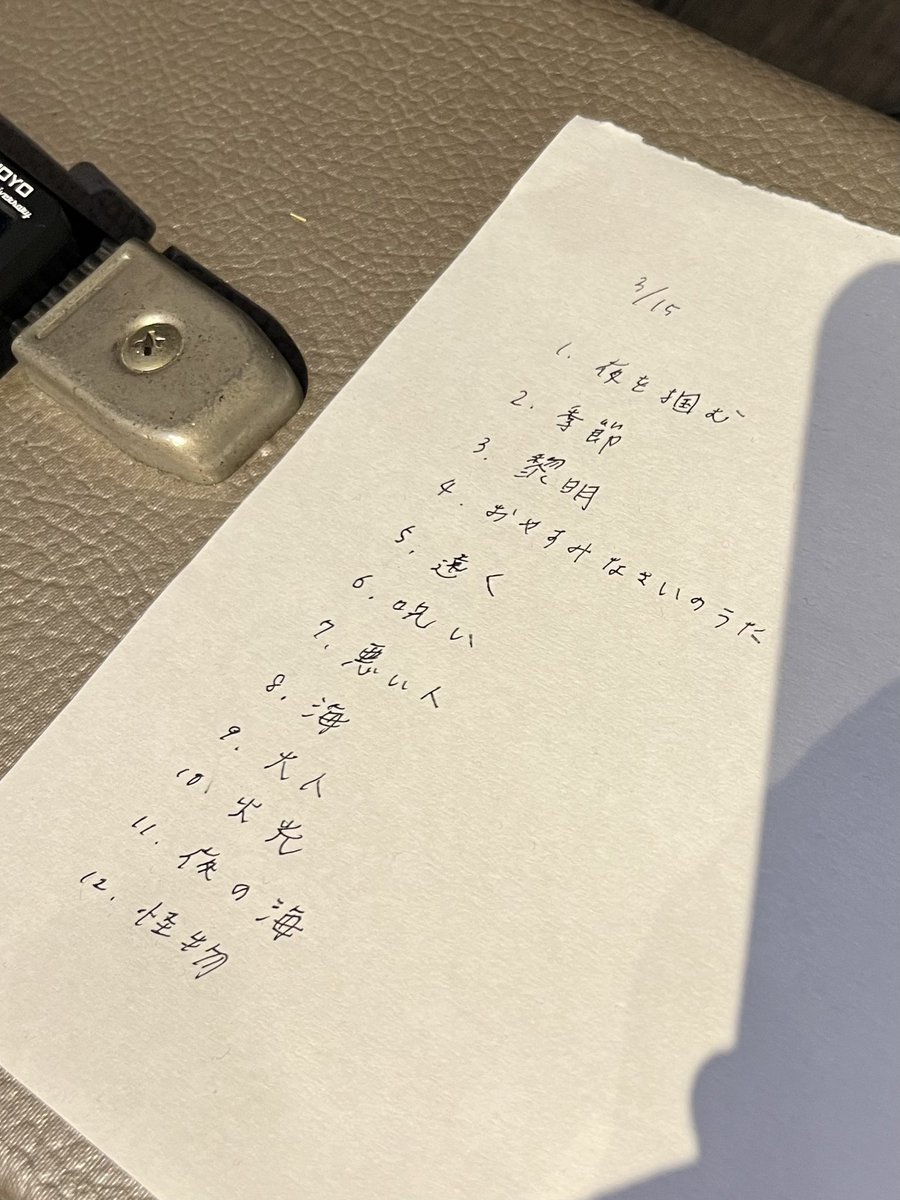 OYO
versary
3/15
1. 夜を掴む
2. 季節
3. 黎明
4. おやすみなさいのうた
5. 遠く
6. 呪い
7. 悪い人
8. 海
9. 大人
10. 火光
11. 夜の海
12. 怪物